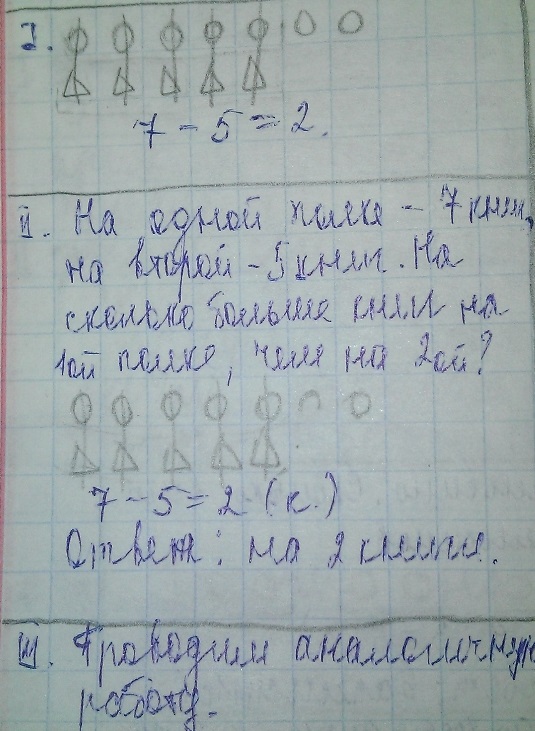 I.
7 - 5 = 2.
II. На одной полке - 7 книг,
на второй - 5 книг. На
сколько больше книг на
1ой полке, чем на 2ой?
7 - 5 = 2 (к.)
Ответ: на 2 книги.
III. Проводим аналогичную
работу.